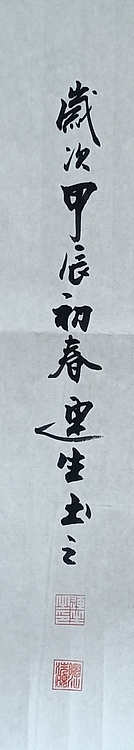 歲次甲辰初春連生书之